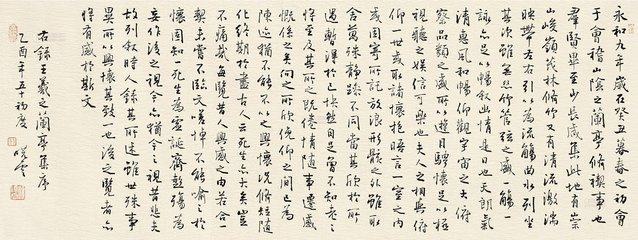 永和九年歲在癸丑暮春之初會
于會稽山陰之蘭亭脩禊事也
群賢畢至少長咸集此地有崇
山峻嶺茂林脩竹又有清流激湍
映帶左右引以為流觴曲水列坐
其次雖無絲竹管弦之盛一觴一
詠亦足以暢敘幽情是日也天朗氣
清惠風和暢仰觀宇宙之大俯
察品類之盛所以遊目騁懷足以極
視聽之娛信可樂也夫人之相與俯
仰一世或取諸懷抱晤言一室之內
或因寄所託放浪形骸之外雖趣
舍萬殊靜躁不同當其欣於所
遇暫得於己快然自足曾不知老之
將至及其所之既倦情隨事遷感
慨係之矣向之所欣俛仰之間已為
陳迹猶不能不以之興懷況脩短隨
化終期於盡古人云死生亦大矣豈
不痛哉每覽昔人興感之由若合一
契未嘗不臨文嗟悼不能喻之於
懷固知一死生為虛誕齊彭殤為
妄作後之視今亦猶今之視昔悲夫
故列敘時人錄其所述雖世殊事
異所以興懷其致一也後之覽者亦
將有感於斯文
右錄王羲之蘭亭集序
乙酉年五十初度